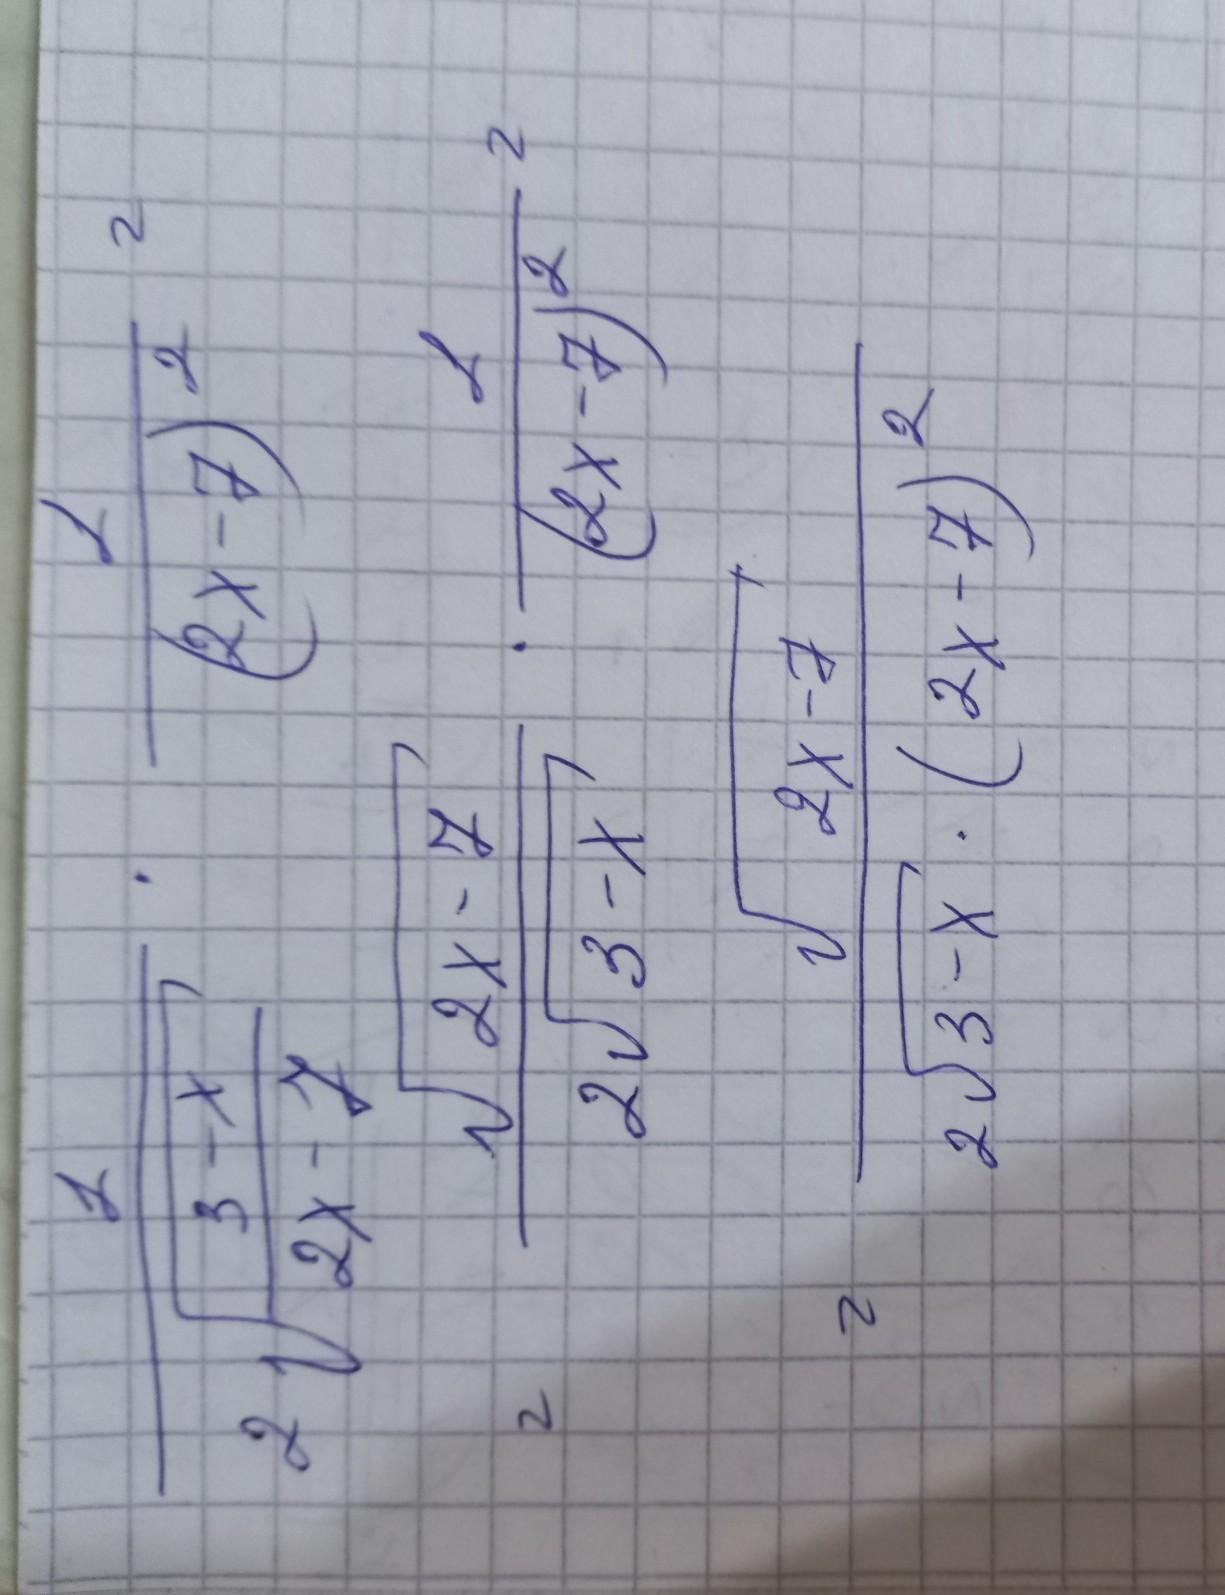 1/(2√((3-x)/(2x-7))) · 1/(2x-7)² =
= √(2x-7)/(2√(3-x)) · 1/(2x-7)² =
= √(2x-7)/(2√(3-x) · (2x-7)²)